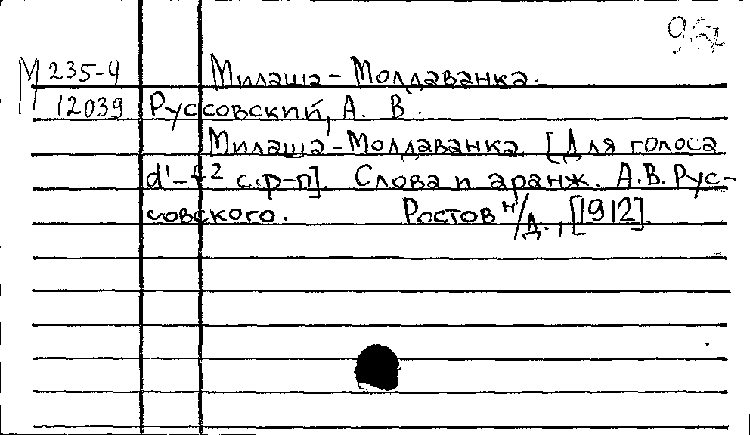 М 235-4 Милаша-Молдаванка.
12039 Руссовский, А. В.
Милаша-Молдаванка. [Для голоса
d'-f² с ф-п]. Слова и аранж. А.В. Рус-
совского. Ростов н/Д., [1912].